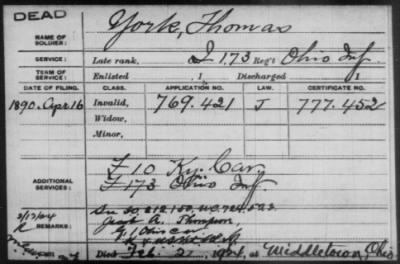 DEAD
NAME OF SOLDIER: York, Thomas
SERVICE: Late rank, I 173 Reg't Ohio Inf.
TERM OF SERVICE: Enlisted , 1 Discharged , 1
DATE OF FILING. CLASS. APPLICATION NO. LAW. CERTIFICATE NO.
1890. Apr 16 Invalid, 769.421 J 777.452
Widow,
Minor,
ADDITIONAL SERVICES: F 10 Ky. Cav.
F 173 Ohio Inf
REMARKS: A. Thompson
Died 21 1924, at Middletown, Ohio